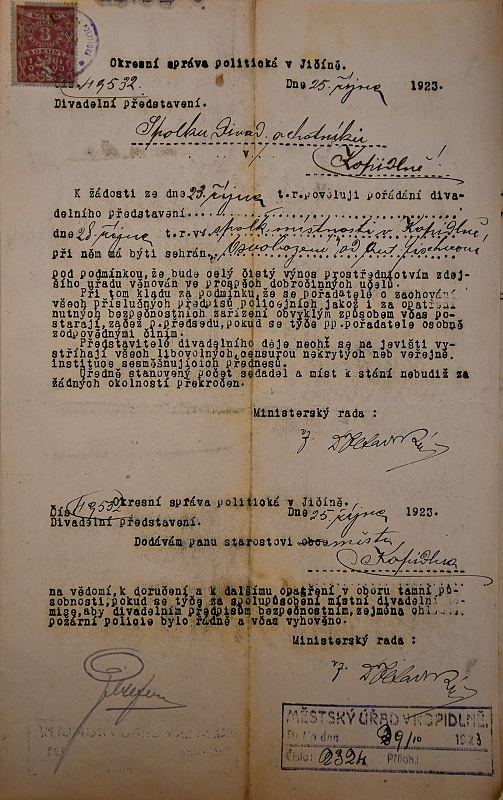 Okresní správa politická v Jičíně.
49532. Dne 25. října 1923.
Divadelní představení.
Spolku divad. ochotníků
v
Kopidlně!
K žádosti ze dne 23. října t.r. povoluji pořádání diva-
delního představení
dne 28. října t.r. ve spolk. místnosti v Kopidlně,
při něm má býti sehrán
pod podmínkou, že bude celý čistý výnos prostřednictvím zdej-
šího úřadu věnován ve prospěch dobročinných účelů.
Při tom kladu za podmínku, že se pořadatelé o zachování
všech příslušných předpisů policejních jakož i za opatření
nutných bezpečnostních zařízení obvyklým způsobem včas po-
starají, začež p. předsedu, pokud se týče pp. pořadatele osobně
zodpovědnými činím.
Představitelé divadelního děje nechť se na jevišti vy-
stříhají všech libovolných, censurou nekrytých neb veřejné
instituce sesměšňujících přednesů.
Úředně stanovený počet sedadel a míst k stání nebudiž za
žádných okolností překročen.
Ministerský rada :
Okresní správa politická v Jičíně.
Čís. 49532 Dne 25. října 1923.
Divadelní představení.
Dodávám panu starostovi obce města
Kopidlna
na vědomí, k doručení a k dalšímu opatření v oboru tamní pů-
sobnosti, pokud se týče za spolupůsobení místní divadelní
mise, aby divadelním předpisům bezpečnostním, zejména
požární policie bylo řádně a včas vyhověno.
Ministerský rada :
MĚSTSKÝ ÚŘAD V KOPIDLNĚ
dne 29/10 1923
Číslo: 2324 Příloh: